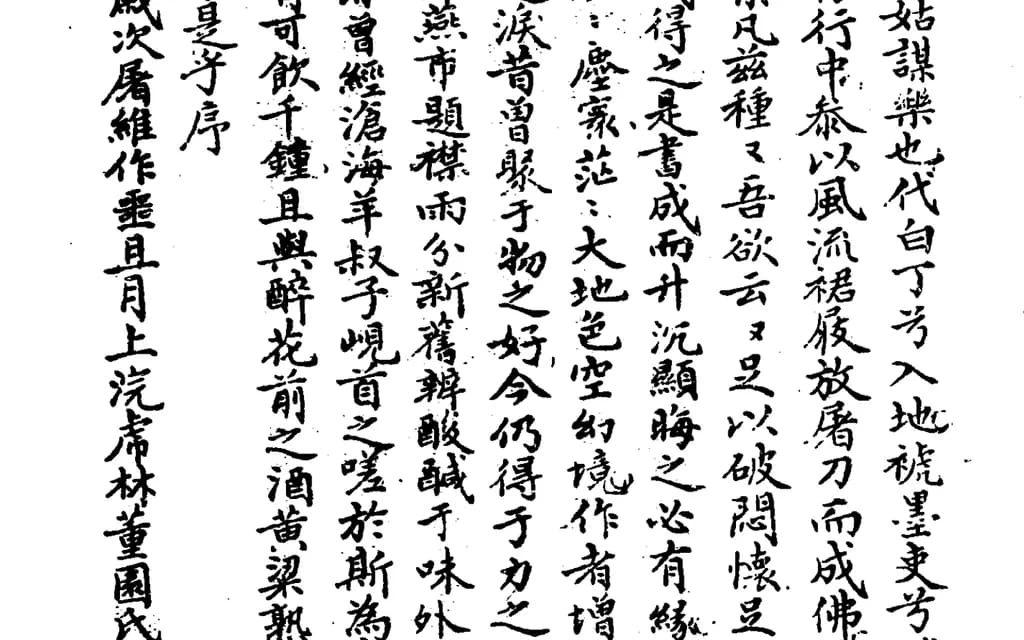 姑謀樂也代白丁兮入地褫墨吏兮
行中叅以風流裙屐放屠刀而成佛
凡兹種々吾欲云々足以破悶懷足
得之是書成而升沉顯晦之必有緣
塵寰茫々大地色空幻境作者增
淚昔曽聚于物之好今仍得于力之
燕市題襟雨分新舊辨酸鹹于味外
曽經滄海羊叔子峴首之嗟於斯為
可飲千鍾且與醉花前之酒黄粱熟
是乎序
歲次屠維作噩且月上浣虎林董園氏